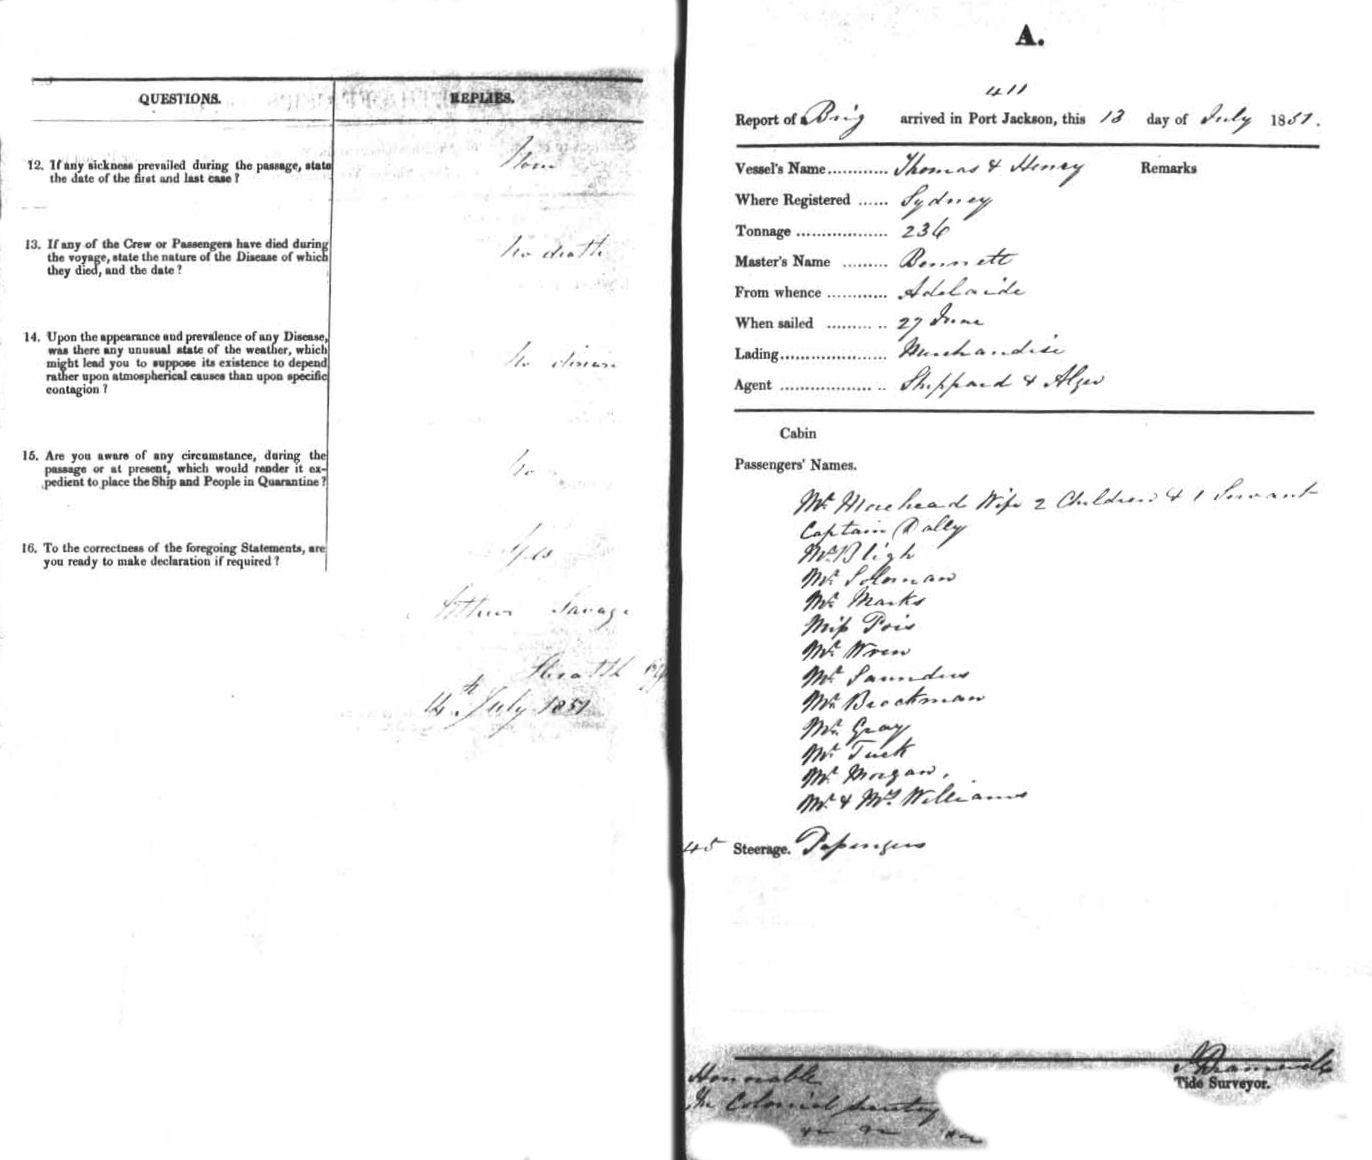 QUESTIONS.
REPLIES.
12. If any sickness prevailed during the passage, state
the date of the first and last case?
None
13. If any of the Crew or Passengers have died during
the voyage, state the nature of the Disease of which
they died, and the date?
No death
14. Upon the appearance and prevalence of any Disease,
was there any unusual state of the weather, which
might lead you to suppose its existence to depend
rather upon atmospherical causes than upon specific
contagion?
No disease
15. Are you aware of any circumstance, during the
passage or at present, which would render it ex-
pedient to place the Ship and People in Quarantine?
No
16. To the correctness of the foregoing Statements, are
you ready to make declaration if required?
Yes
Arthur Savage
Health
14th July 1851
A.
411
Report of a Brig arrived in Port Jackson, this 13 day of July 1851.
Vessel's Name............ Thomas & Henry Remarks
Where Registered ...... Sydney
Tonnage .................. 236
Master's Name ......... Bennett
From whence ............ Adelaide
When sailed ......... .. 27 June
Lading..................... Merchandise
Agent .................. .. Sheppard & Alger
Cabin
Passengers' Names.
Mr. Morehead Wife 2 Children & 1 Servant
Captain Dally
Mr. Bligh
Mr. Soloman
Mr. Marks
Miss Pois
Mr. Wren
Mr. Saunders
Mr. Brockman
Mr. Gray
Mr. Tuck
Mr. Morgan.
Mr. & Mrs. Williams
45 Steerage. Passengers
Tide Surveyor.
Honorable
The Colonial Secretary
&c &c &c